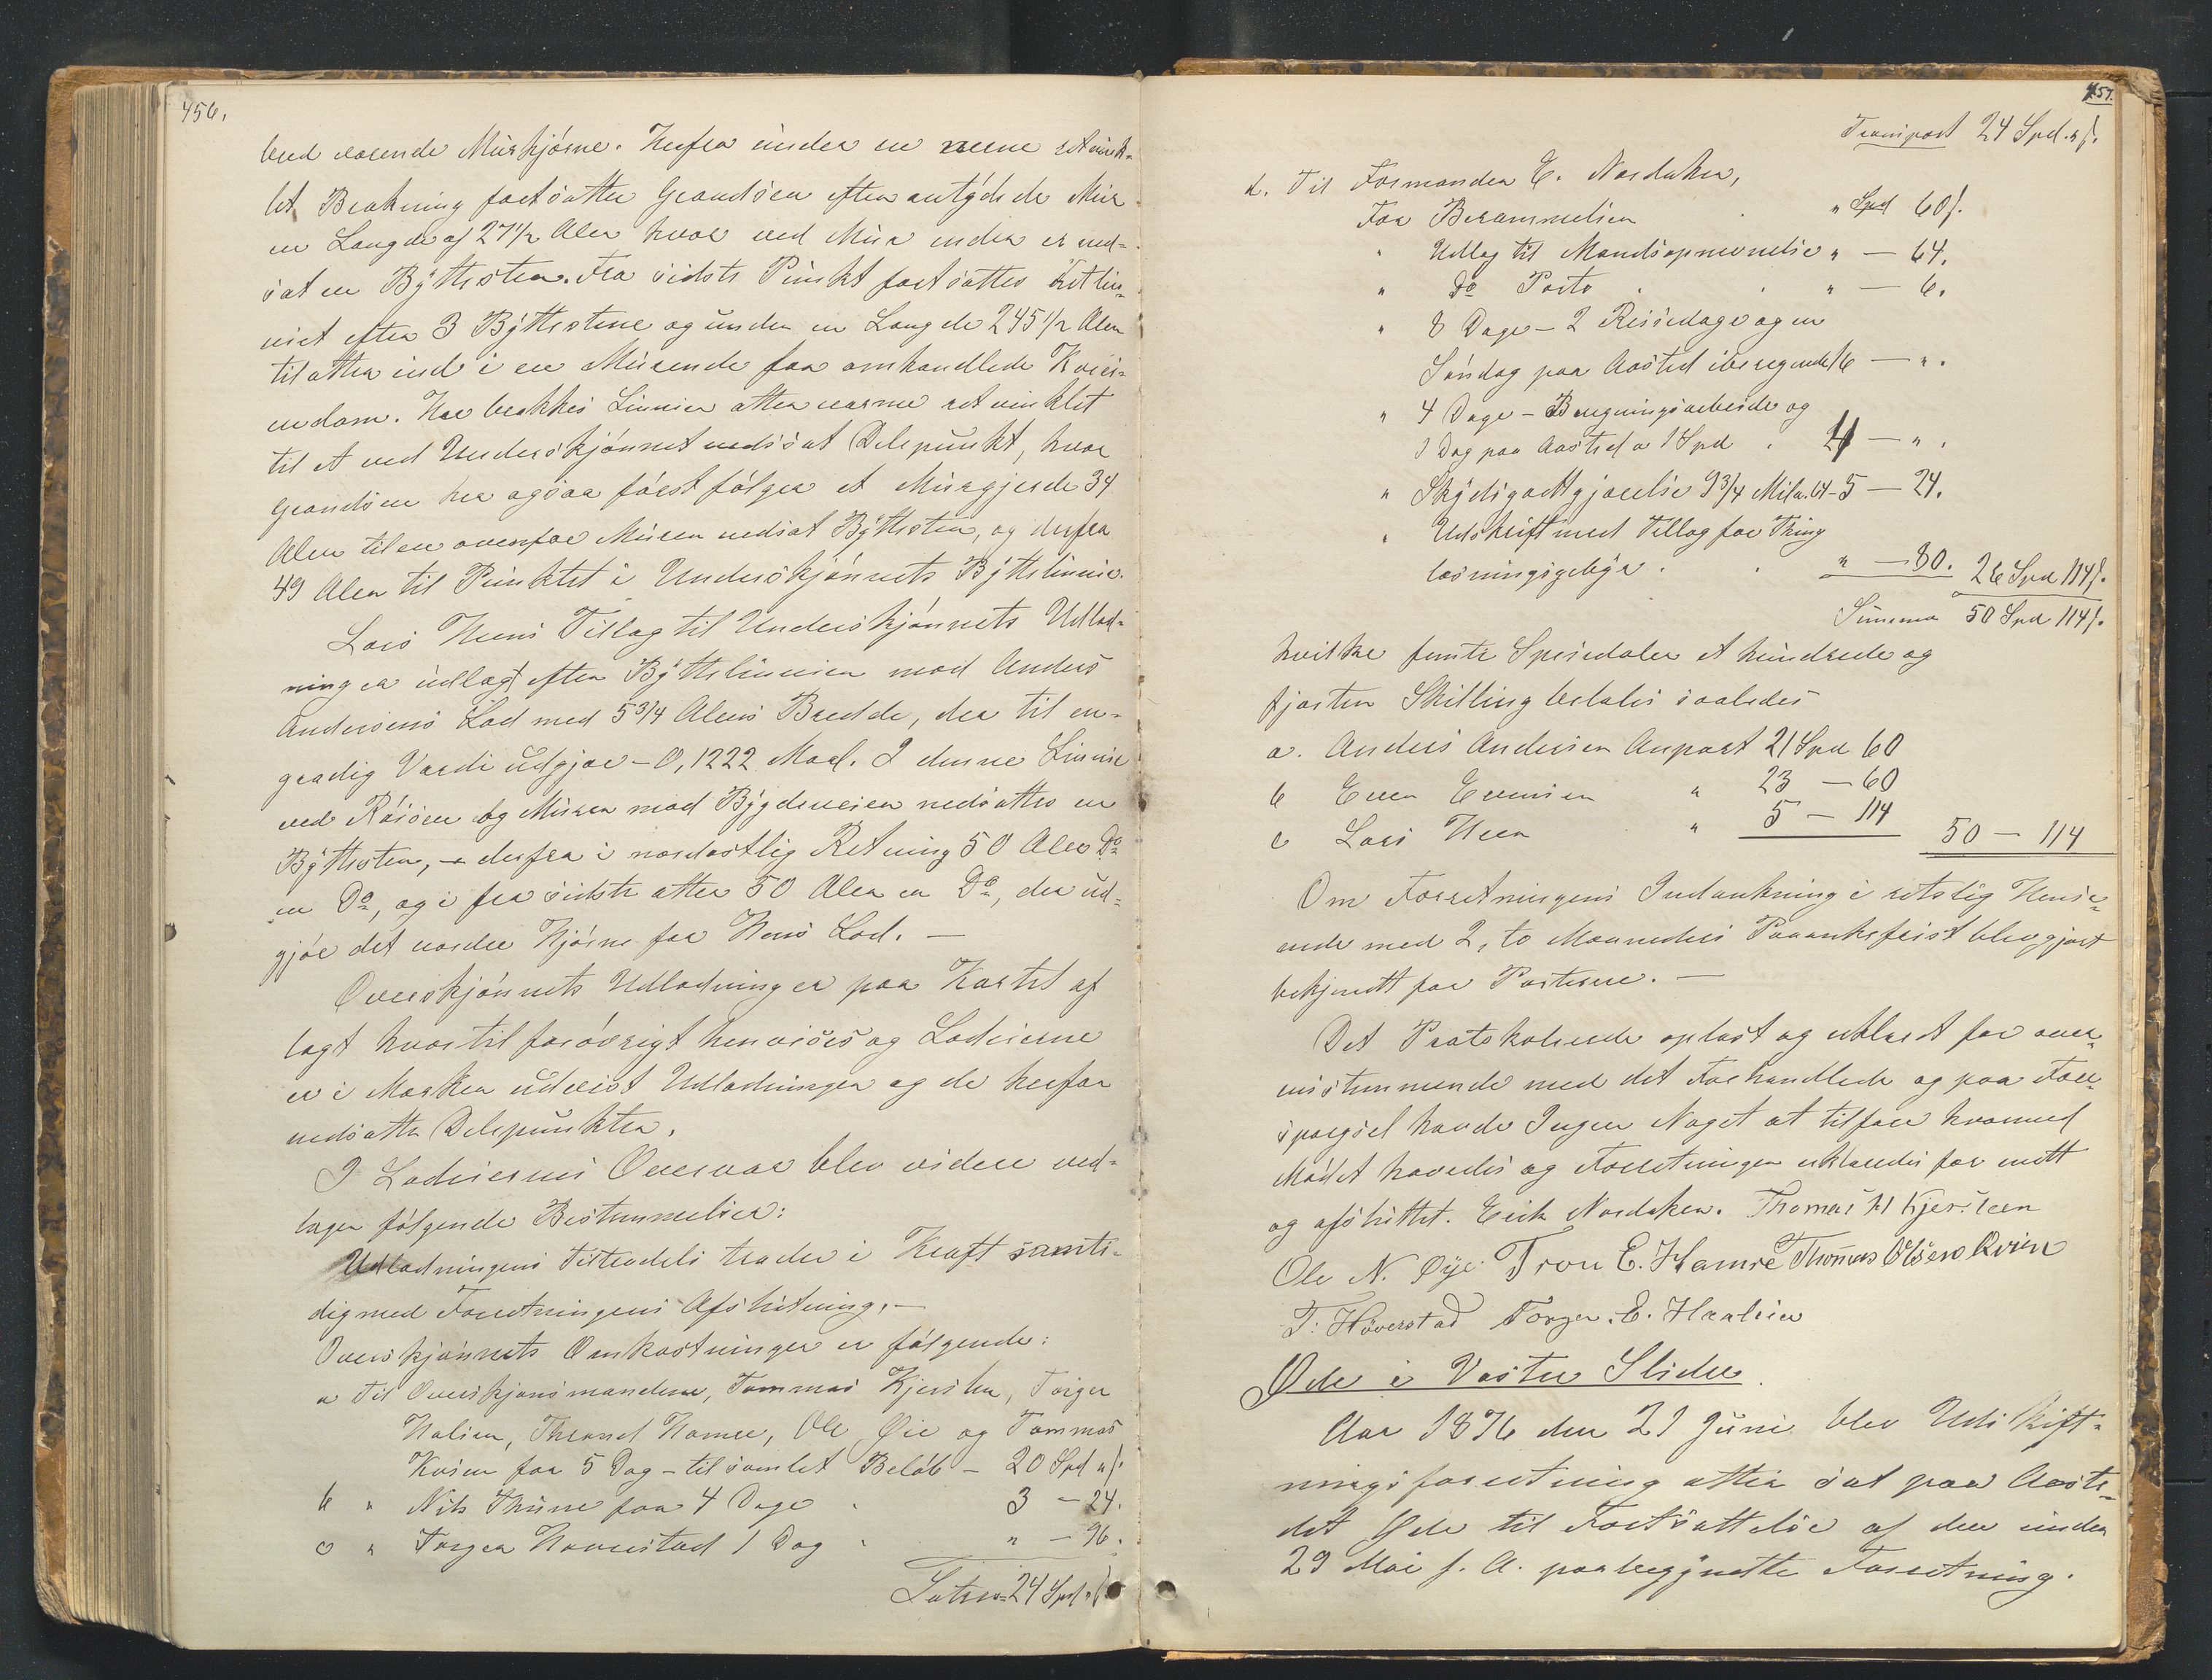 456.
ved værende Murhjørne. Herfra under en nærme retvink-
let Brækning fortsætter Grændsen efter antydede Mur
en Længde af 27 1/2 Alen hvor ved Mur enden er ned-
sat en Byttesten. Fra sidste Punkt fortsættes Retlin-
niet efter 3 Byttestene og under en Længde 245 1/2 Alen
til atter ind i en Murende for omhandlede Kviei-
endom. Her brækkes Linnien atter nærme retvinklet
til et ved Underskjønnet nedsat Delepunkt, hvor
Grændsen her ogsaa først følger et Murgjerde 34
Alen til en ovenfor Muren nedsat Byttesten, og derfra
49 Alen til Punktet i Underskjønnets Byttelinnie.
Lars Heens Tillæg til Underskjønnets Udlod-
ning er udlagt efter Byttelinnien mod Anders
Andersens Lod med 5 3/4 Alens Bredde, der til en-
gradig Værdi udgjør - 0,1222 Maal. I denne Linnie
ved Røisen og Muren mod Bygdeveien nedsattes en
Byttesten, - derfra i nordostlig Retning 50 Alen Do
en Do, og i fra sidste atter 50 Alen en Do, der ud-
gjør det nordre Hjørne for Heens Lod. -
Overskjønnets Udlodninger paa Kartet af
lagt hvortil forøvrigt henvises og Lodeierne
er i Marken udvist Udlodningen og de herfor
nedsatte Delepunkter.
I Lodeiernes Overvær blev videre ved-
tagen følgende Bestemmelser:
Udlodningens Tiltrædels træder i Kraft samti-
dig med Forretningens Afslutning. -
Overskjønnets Omkostninger er følgende:
a Til Overskjønsmændene, Tommas Kjersten, Torger
Halien, Thrond Hamre, Ole Øie og Tommas
Kvien for 5 Dag - tilsamlet Beløb - 20 Spd " ſ.
b " Nils Thune for 4 Dage . 3 - 24.
c " Torger Haverstad 1 Dag . " - 96.
Latus = 24 Spd " ſ
457.
Transport 24 Spd. " ſ.
d. Til Formanden E. Nordaker,
For Berammelsen . " Spd 60 ſ.
" Udlæg til Mandsopnævnelse " - 64.
" Do Porto . . " - 6.
" 8 Dage - 2 Reisedage og en
Søndag paa Aasted iberegnede 16 - " .
" 4 Dage - Beregningsarbeide og
1 Dag paa Aasted a 1 Spd . 4 - " .
" Skydsgodtgjørelse 9 3/4 Mil a 64 - 5 - 24.
" Udskrift med Tillæg for Thing
læsningsgebyr . . " - 80. 26 Spd 114 ſ.
Summa 50 Spd 114 ſ.
hvilke femti Speciedaler et hundrede og
fjorten Skilling betales saaledes
a. Anders Andersen Anpart 21 Spd 60
b Even Evensen " 23 - 60
c Lars Heen " 5 - 114 50 - 114
Om Forretningens Indankning i retslig Hense-
ende med 2, to Maaneders Paaankefrist blev gjort
bekjendt for Parterne. -
Det Protokollerede oplæst og erklæret for over-
ensstemmende med det Forhandlede og paa Fore-
spørgsel havde Ingen Noget at tilføre hvormed
Mødet hævedes og Forretningen erklæredes for endt
og afsluttet. Erik Nordaker. Thomas H Kjersteen
Ole N. Øye Tron E. Hamre Thommas Olsen Kvien
T. Høverstad Torger. E. Haalien
Øde i Vestre Slidre.
Aar 1876 den 21 Juni blev Udskift-
ningsforretning atter sat paa Aaste-
det Øde til Fortsættelse af den under
29 Mai f. A. paabegyndte Forretning.